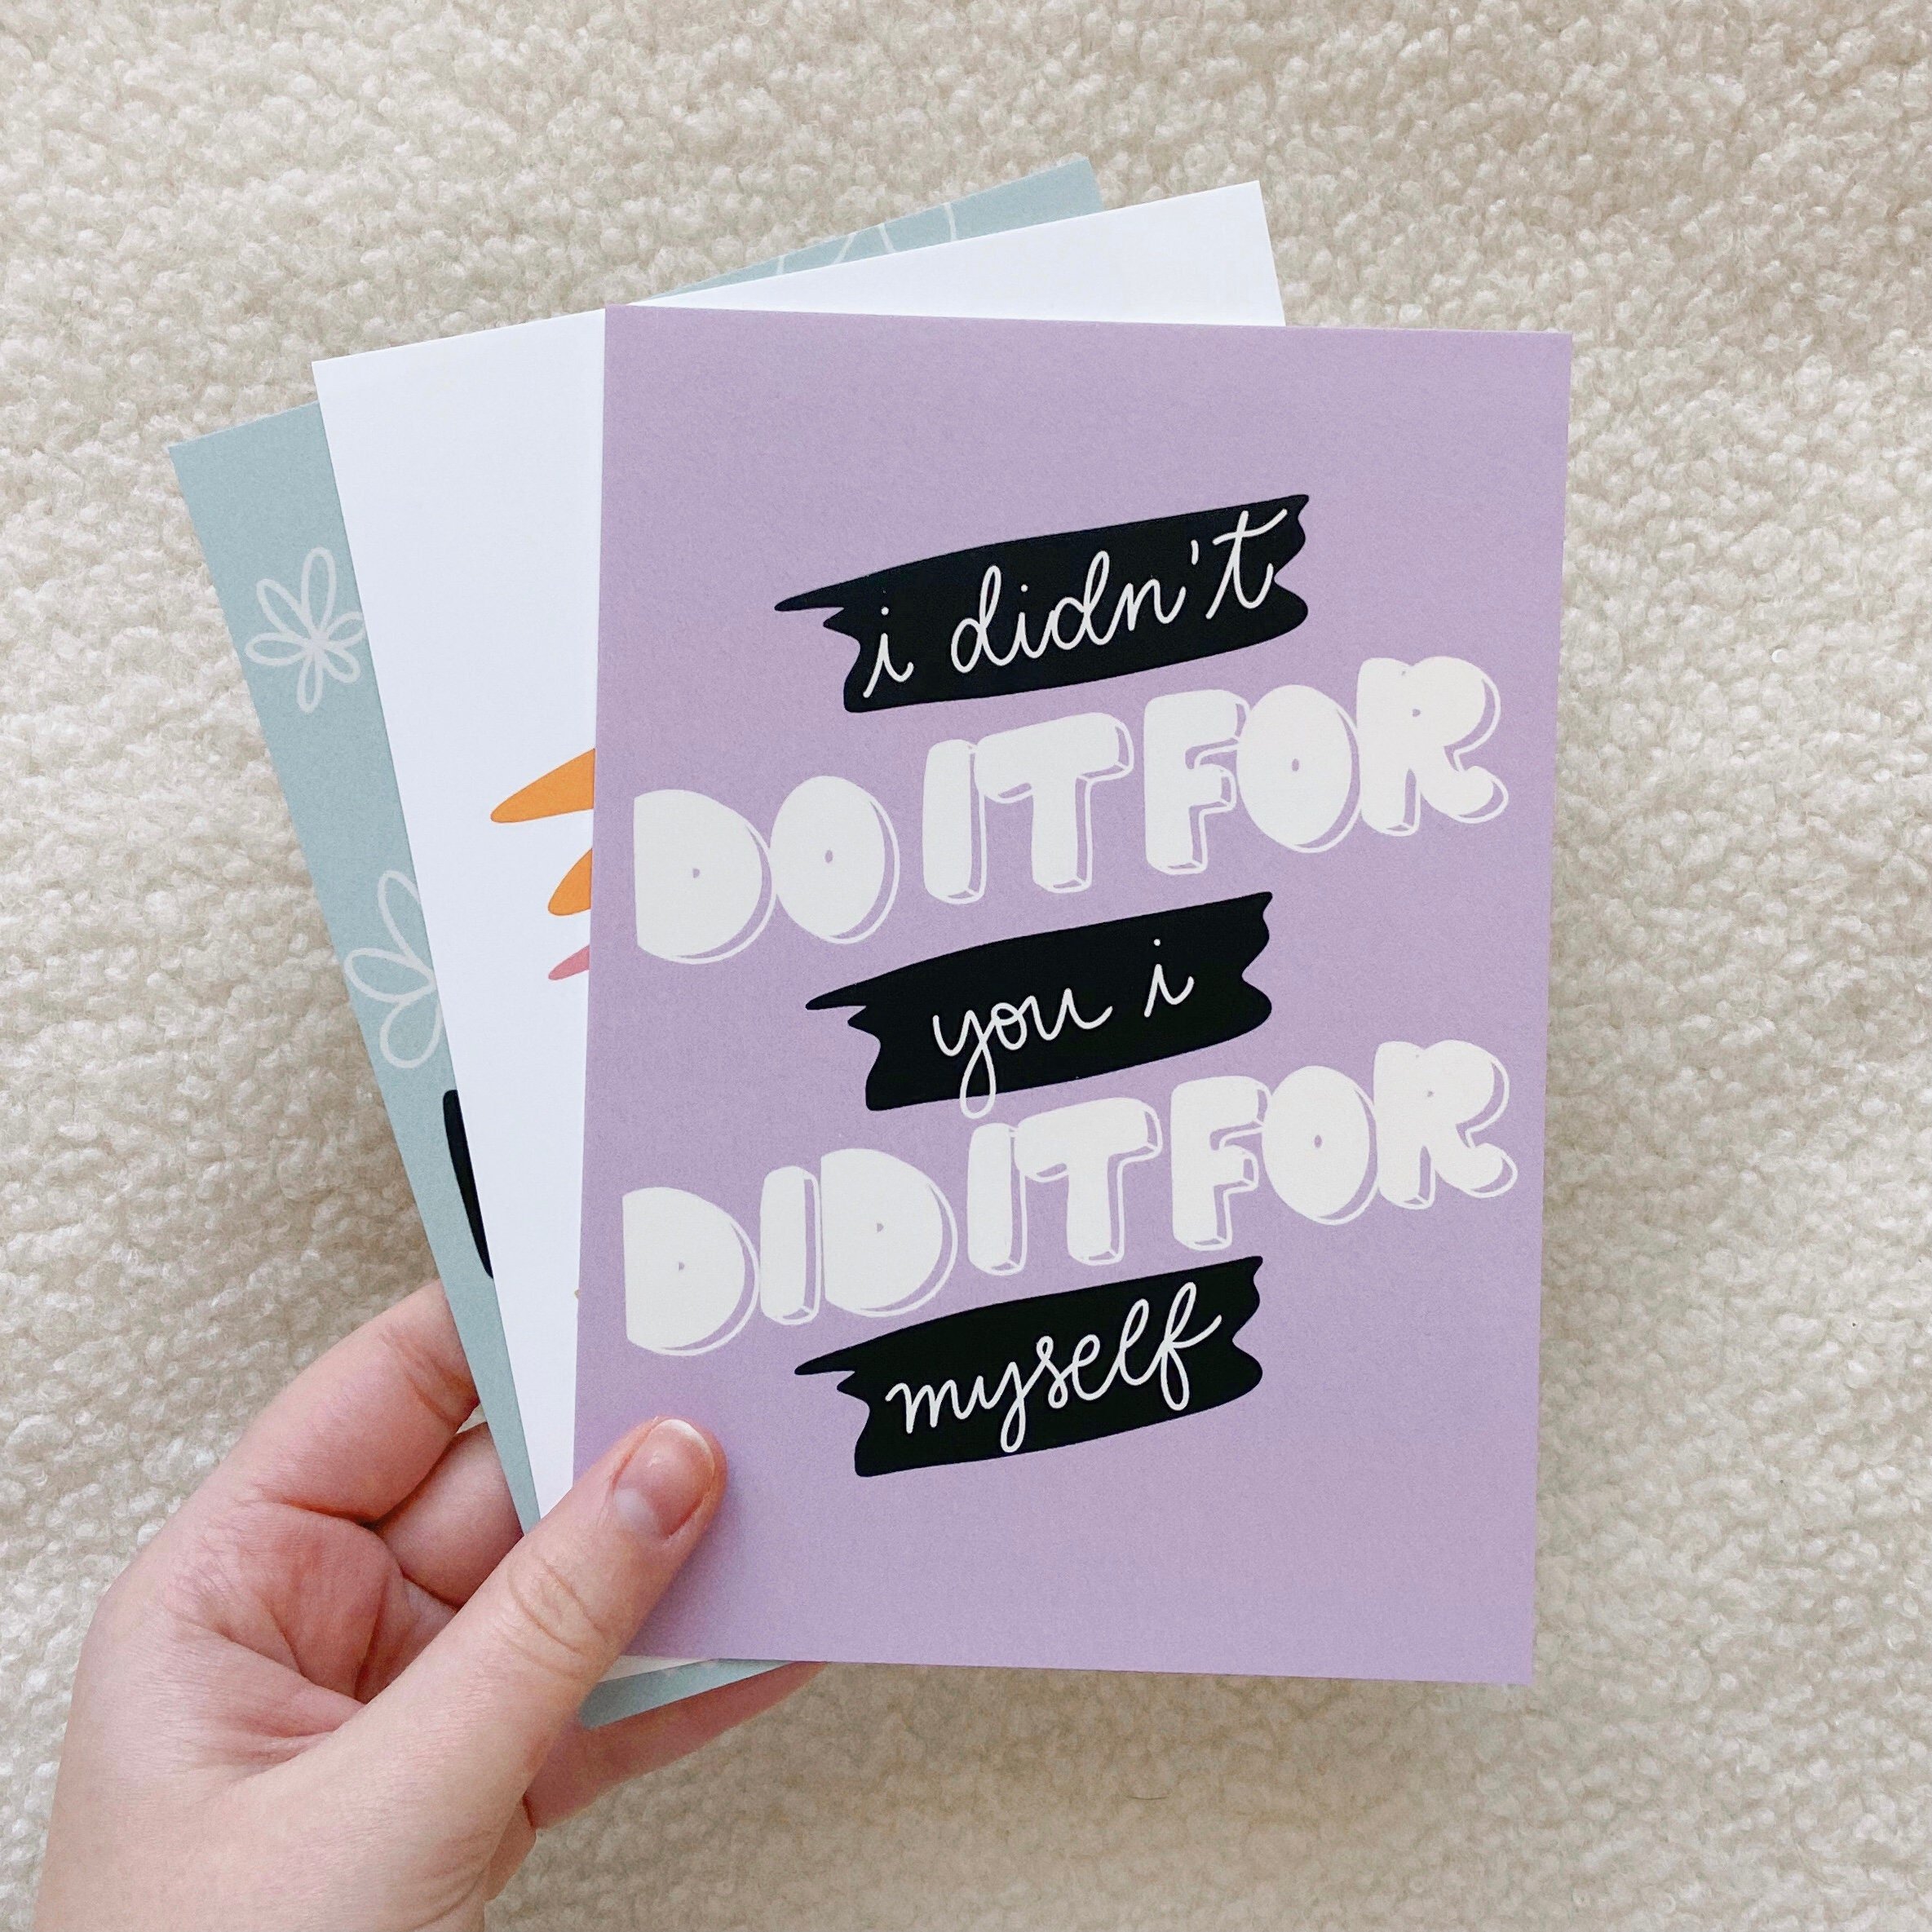 i didn't
DO IT FOR
you i
DID IT FOR
myself